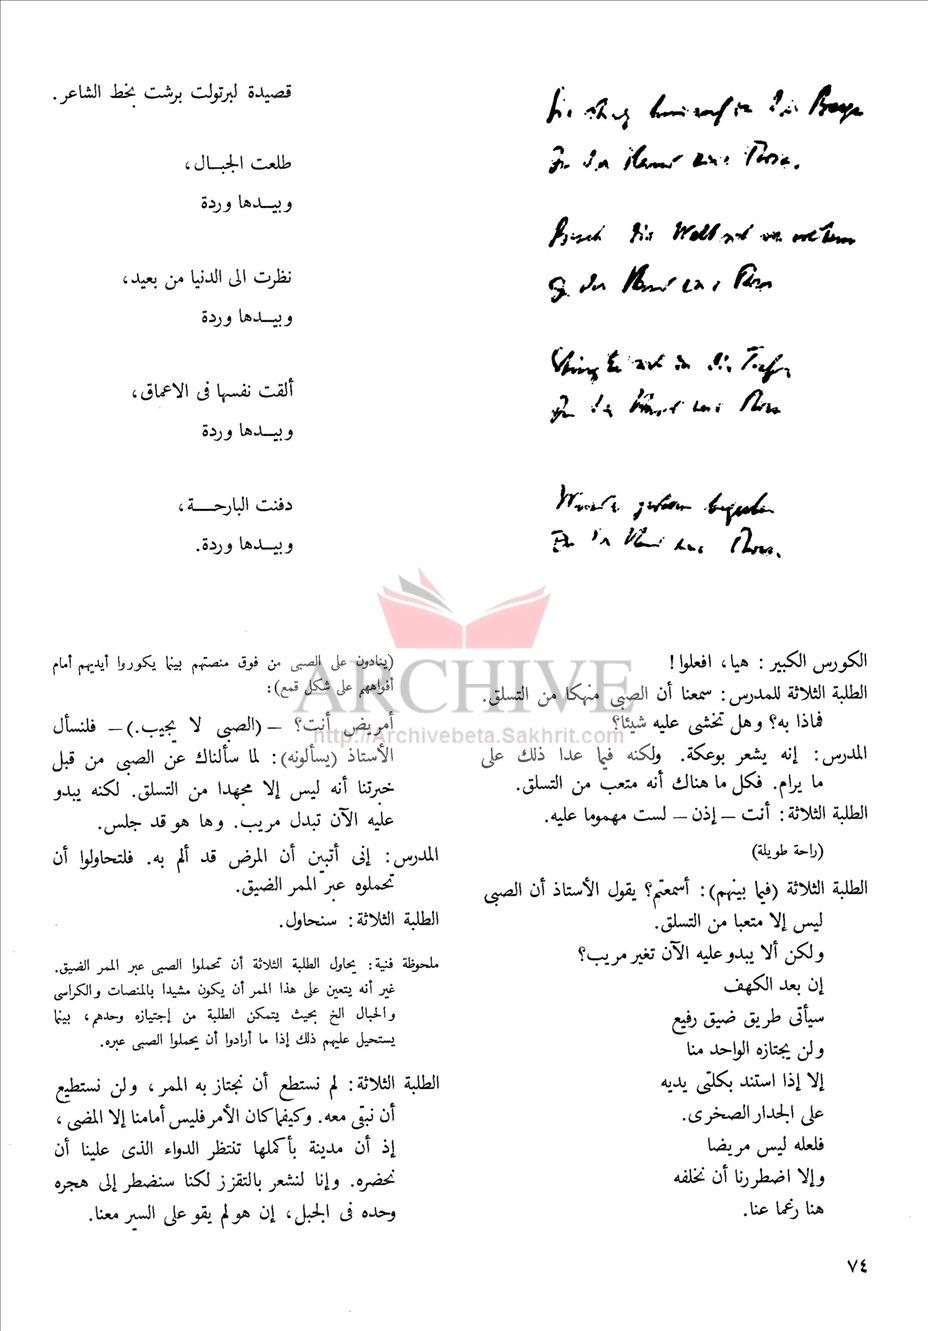 قصيدة لبرتولت برشت بخط الشاعر.
طلعت الجبـال،
وبيـدها وردة
نظرت الى الدنيا من بعيد،
وبيـدها وردة
ألقت نفسها فى الاعماق،
وبيـدها وردة
دفنت البارحـــة،
وبيـدها وردة.
ARCHIVE
http://Archivebeta.Sakhrit.com
الكورس الكبير : هيا، افعلوا!
الطلبة الثلاثة للمدرس: سمعنا أن الصبى منهكا من التسلق.
فماذا به؟ وهل تخشى عليه شيئا؟
المدرس: إنه يشعر بوعكة. ولكنه فيما عدا ذلك على
ما يرام. فكل ما هناك أنه متعب من التسلق.
الطلبة الثلاثة: أنت – إذن – لست مهموما عليه.
(راحة طويلة)
الطلبة الثلاثة (فيما بينهم): أسمعتم؟ يقول الأستاذ أن الصبى
ليس إلا متعبا من التسلق.
ولكن ألا يبدو عليه الآن تغير مريب؟
إن بعد الكهف
سيأتى طريق ضيق رفيع
ولن يجتازه الواحد منا
إلا إذا استند بكلتى يديه
على الجدار الصخرى.
فلعله ليس مريضا
وإلا اضطررنا أن نخلفه
هنا رغما عنا.
(ينادون على الصبى من فوق منصتهم بينما يكوروا أيديهم أمام
أفواههم على شكل قمع):
أمريض أنت؟ – (الصبى لا يجيب.) – فلنسأل
الأستاذ (يسألونه): لما سألناك عن الصبى من قبل
خبرتنا أنه ليس إلا مجهدا من التسلق. لكنه يبدو
عليه الآن تبدل مريب. وها هو قد جلس.
المدرس: إنى أتبين أن المرض قد ألم به. فلتحاولوا أن
تحملوه عبر الممر الضيق.
الطلبة الثلاثة: سنحاول.
ملحوظة فنية: يحاول الطلبة الثلاثة أن تحملوا الصبى عبر الممر الضيق.
غير أنه يتعين على هذا الممر أن يكون مشيدا بالمنصات والكراسى
والحبال الخ بحيث يتمكن الطلبة من إجتيازه وحدهم، بينما
يستحيل عليهم ذلك إذا ما أرادوا أن يحملوا الصبى عبره.
الطلبة الثلاثة: لم نستطع أن نجتاز به الممر، ولن نستطيع
أن نبقى معه. وكيفما كان الأمر فليس أمامنا إلا المضى،
إذ أن مدينة بأكملها تنتظر الدواء الذى علينا أن
نحضره. وإنا لنشعر بالتقزز لكنا سنضطر إلى هجره
وحده فى الجبل، إن هو لم يقو على السير معنا.
٧٤